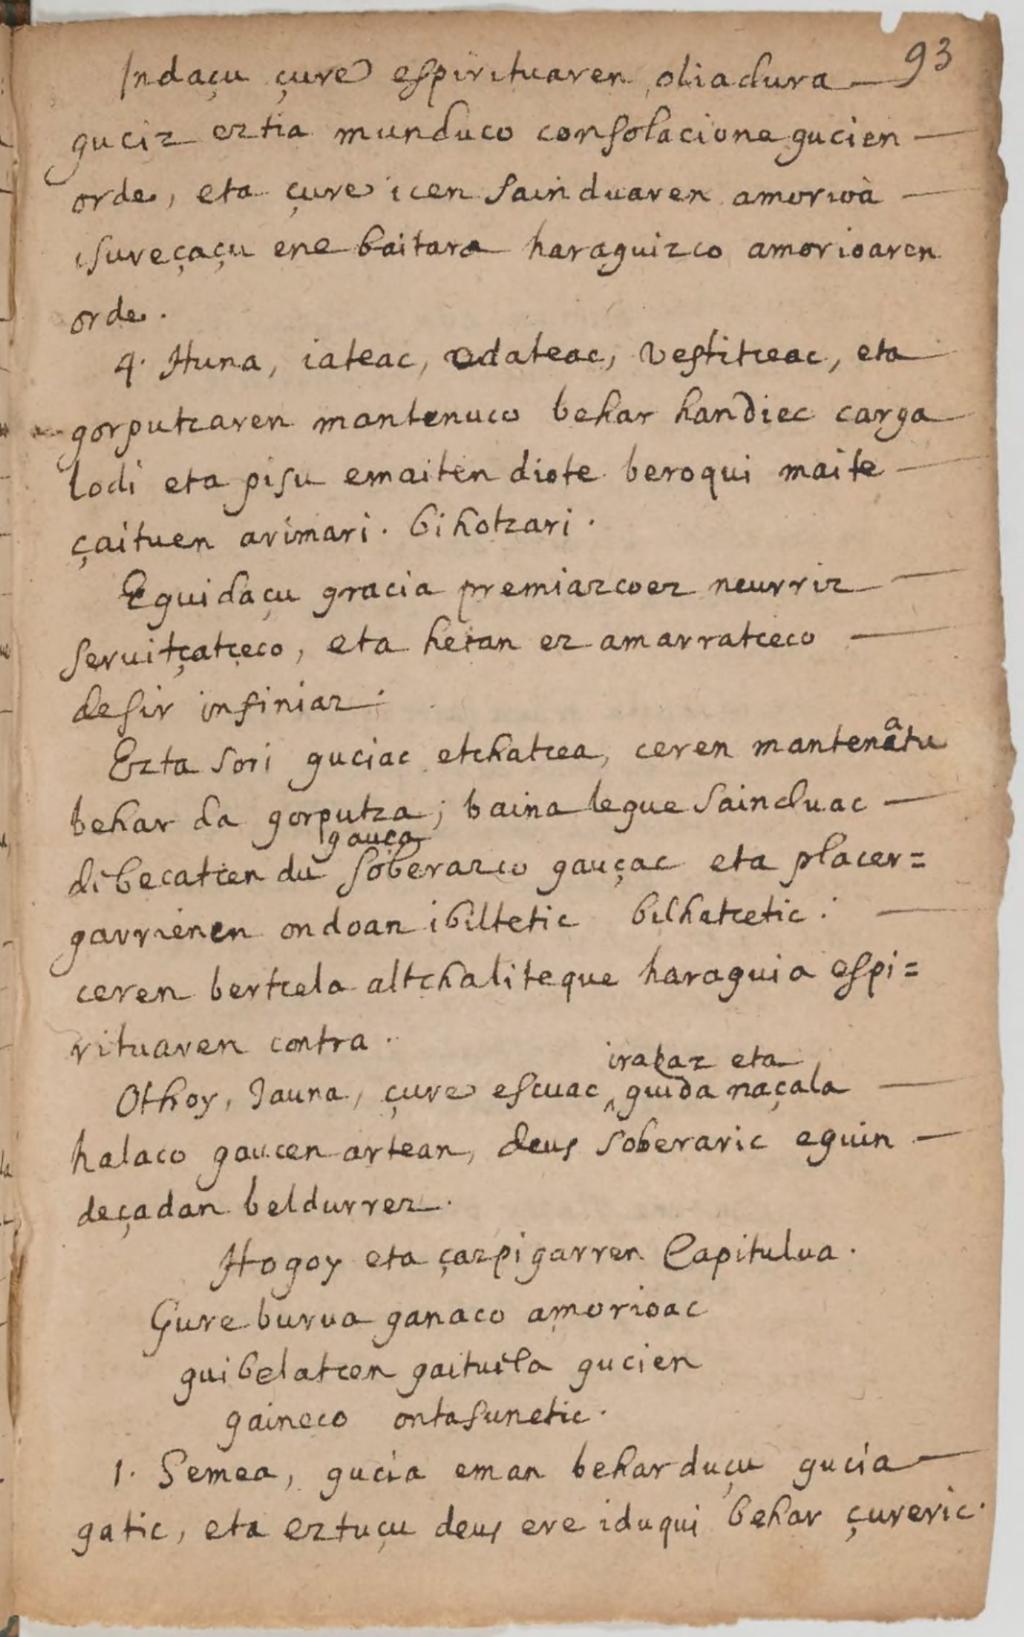 93
Indaçu çure espirituaren oliadura
guciz eztia munduco consolacione gucien
orde, eta çure icen sainduaren amorioa
isureçaçu ene baitara haraguizco amorioaren
orde.
4. Huna, iateac, edateac, vestitceac, eta
gorputzaren mantenuco behar handiec carga
lodi eta pisu emaiten diote beroqui maite
çaituen arimari. bihotzari.
Eguidaçu gracia premiazcoez neurriz
seruitçatçeco, eta hetan ez amarratceco
desir infiniaz.
Ezta sori guciac etchatcea, ceren mantenatu
behar da gorputza; baina legue sainduac
gauça
debecatcen du soberazco gauçac eta placer=
garrienen ondoan ibiltetic bilhatcetic:
ceren bertcela altchaliteque haraguia espi=
rituaren contra.
irakaz eta
Othoy, Jauna, çure escuac ^ guida naçala
halaco gaucen artean, deus soberaric eguin
deçadan beldurrez.
Hogoy eta çazpigarren Capitulua.
Gure burua ganaco amorioac
guibelatcen gaituela gucien
gaineco ontasunetic.
1. Semea, gucia eman behar duçu gucia
gatic, eta eztuçu deus ere iduqui behar çureric.